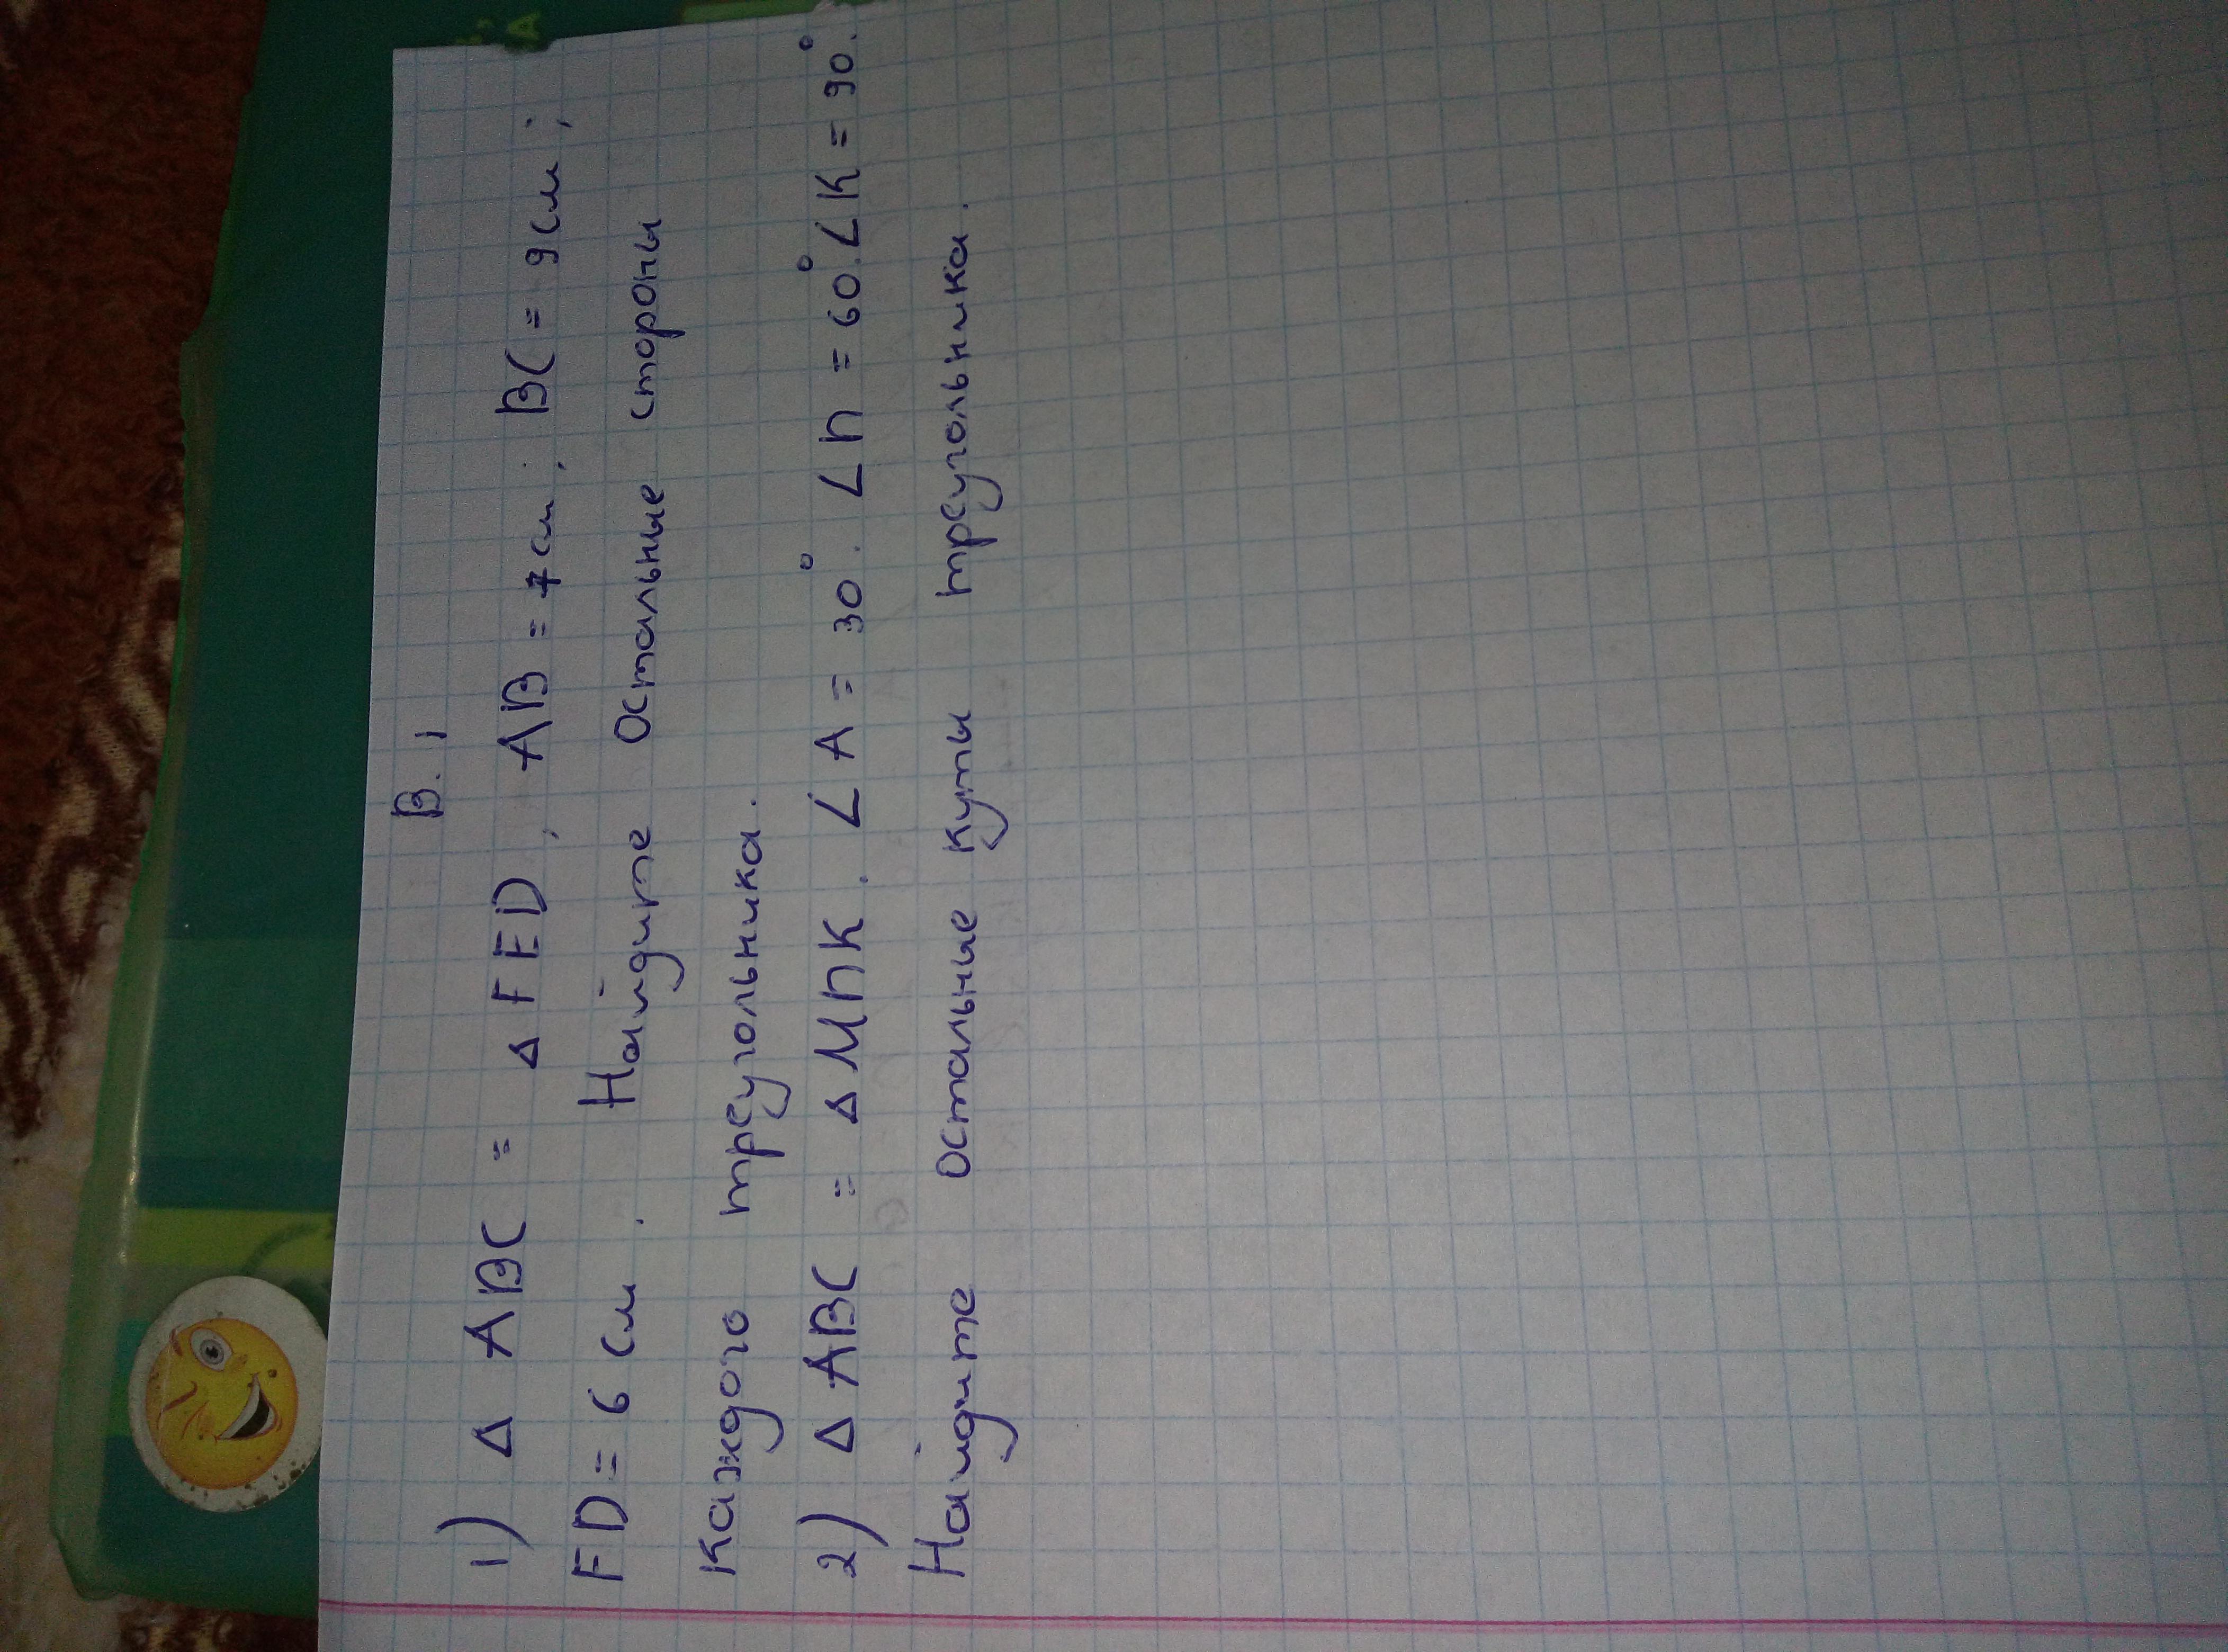 В. 1
1) Δ ABC = Δ FED, AB = 7 см; BC = 9 см;
FD = 6 см. Найдите остальные стороны
каждого треугольника.
2) Δ ABC = Δ MПK. ∠A = 30°. ∠П = 60°. ∠K = 90°.
Найдите остальные куты треугольника.